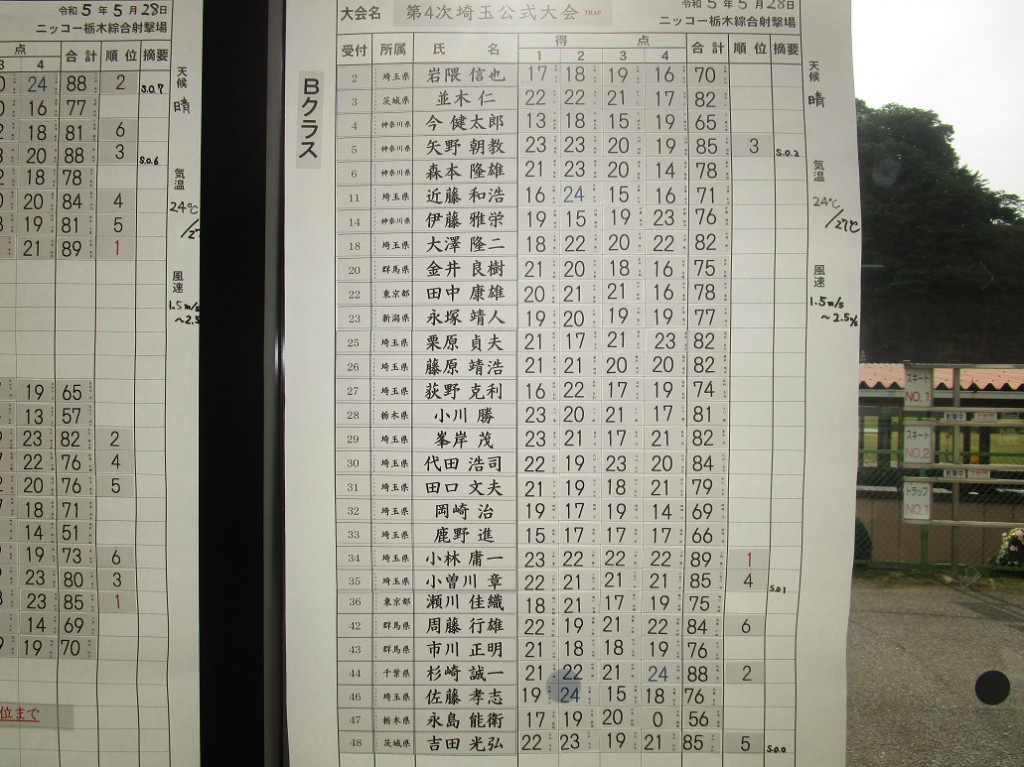 令和 5 年 5 月 28日
ニッコー栃木綜合射撃場
点 合計 順位 摘要
3 4
24 88 2 S.O.7
16 77
18 81 6
20 88 3 S.O.6
18 78
20 84 4
19 81 5
21 89 1
19 65
13 57
23 82 2
22 76 4
20 76 5
18 71
14 51
19 73 6
23 80 3
23 85 1
14 69
19 70
位まで
天候
晴
気温
24℃
風速
1.5m/s
～2.5
大会名 第4次埼玉公式大会 TRAP
令和 5 年 5 月 28日
ニッコー栃木綜合射撃場
Bクラス
受付 所属 氏名 得点 合計 順位 摘要
1 2 3 4
2 埼玉県 岩隈 信也 17 18 19 16 70
3 茨城県 並木 仁 22 22 21 17 82
4 神奈川県 今 健太郎 13 18 15 19 65
5 神奈川県 矢野 朝教 23 23 20 19 85 3 S.O.2
6 神奈川県 森本 隆雄 21 23 20 14 78
11 埼玉県 近藤 和浩 16 24 15 16 71
14 神奈川県 伊藤 雅栄 19 15 19 23 76
18 埼玉県 大澤 隆二 18 22 20 22 82
20 群馬県 金井 良樹 21 20 18 16 75
22 東京都 田中 康雄 20 21 21 16 78
23 新潟県 永塚 靖人 19 20 19 19 77
25 埼玉県 栗原 貞夫 21 17 21 23 82
26 埼玉県 藤原 靖浩 21 21 20 20 82
27 埼玉県 荻野 克利 16 22 17 19 74
28 栃木県 小川 勝 23 20 21 17 81
29 埼玉県 峯岸 茂 23 21 17 21 82
30 埼玉県 代田 浩司 22 19 23 20 84
31 埼玉県 田口 文夫 21 19 18 21 79
32 埼玉県 岡崎 治 19 17 19 14 69
33 埼玉県 鹿野 進 15 17 17 17 66
34 埼玉県 小林 庸一 23 22 22 22 89 1
35 埼玉県 小曽川 章 22 21 21 21 85 4 S.O.1
36 東京都 瀬川 佳織 18 21 17 19 75
42 群馬県 周藤 行雄 22 19 21 22 84 6
43 群馬県 市川 正明 21 18 18 19 76
44 千葉県 杉崎 誠一 21 22 21 24 88 2
46 埼玉県 佐藤 孝志 19 24 15 18 76
47 栃木県 永島 能衛 17 19 20 0 56
48 茨城県 吉田 光弘 22 23 19 21 85 5 S.O.0
天候
晴
気温
24℃
/27℃
風速
1.5m/s
～2.5m/s
スキート
NO.1
スキート
NO.2
トラップ
NO.1